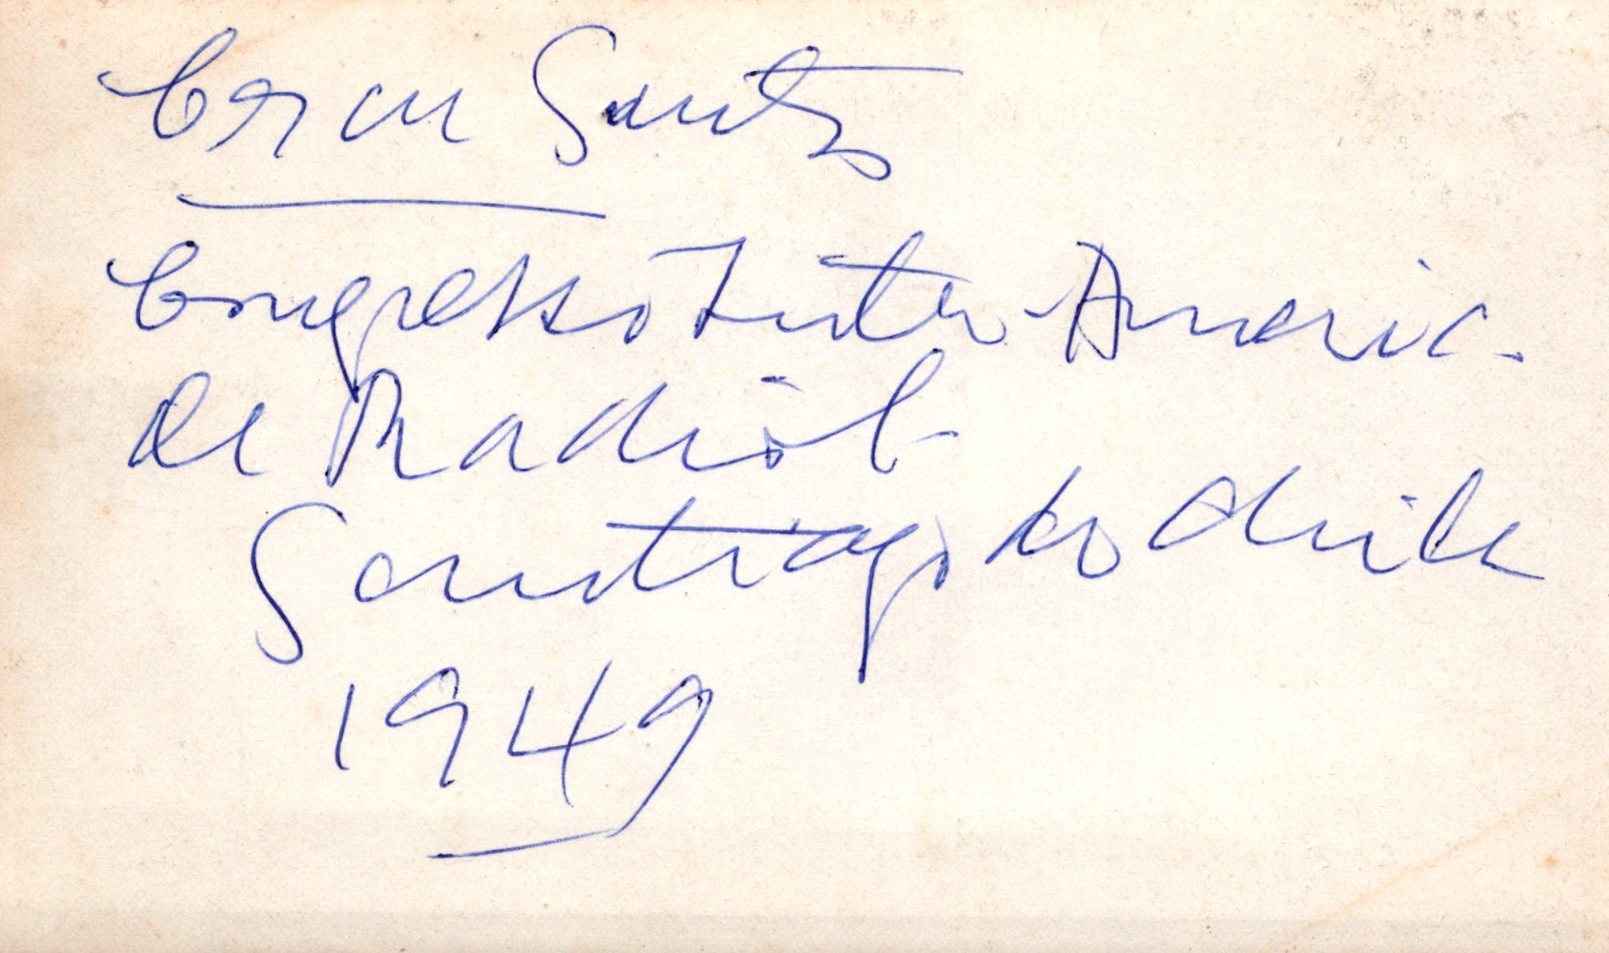 Santos
Congresso Inter-Americ.
de Radiol.
Santiago do Chile
1949